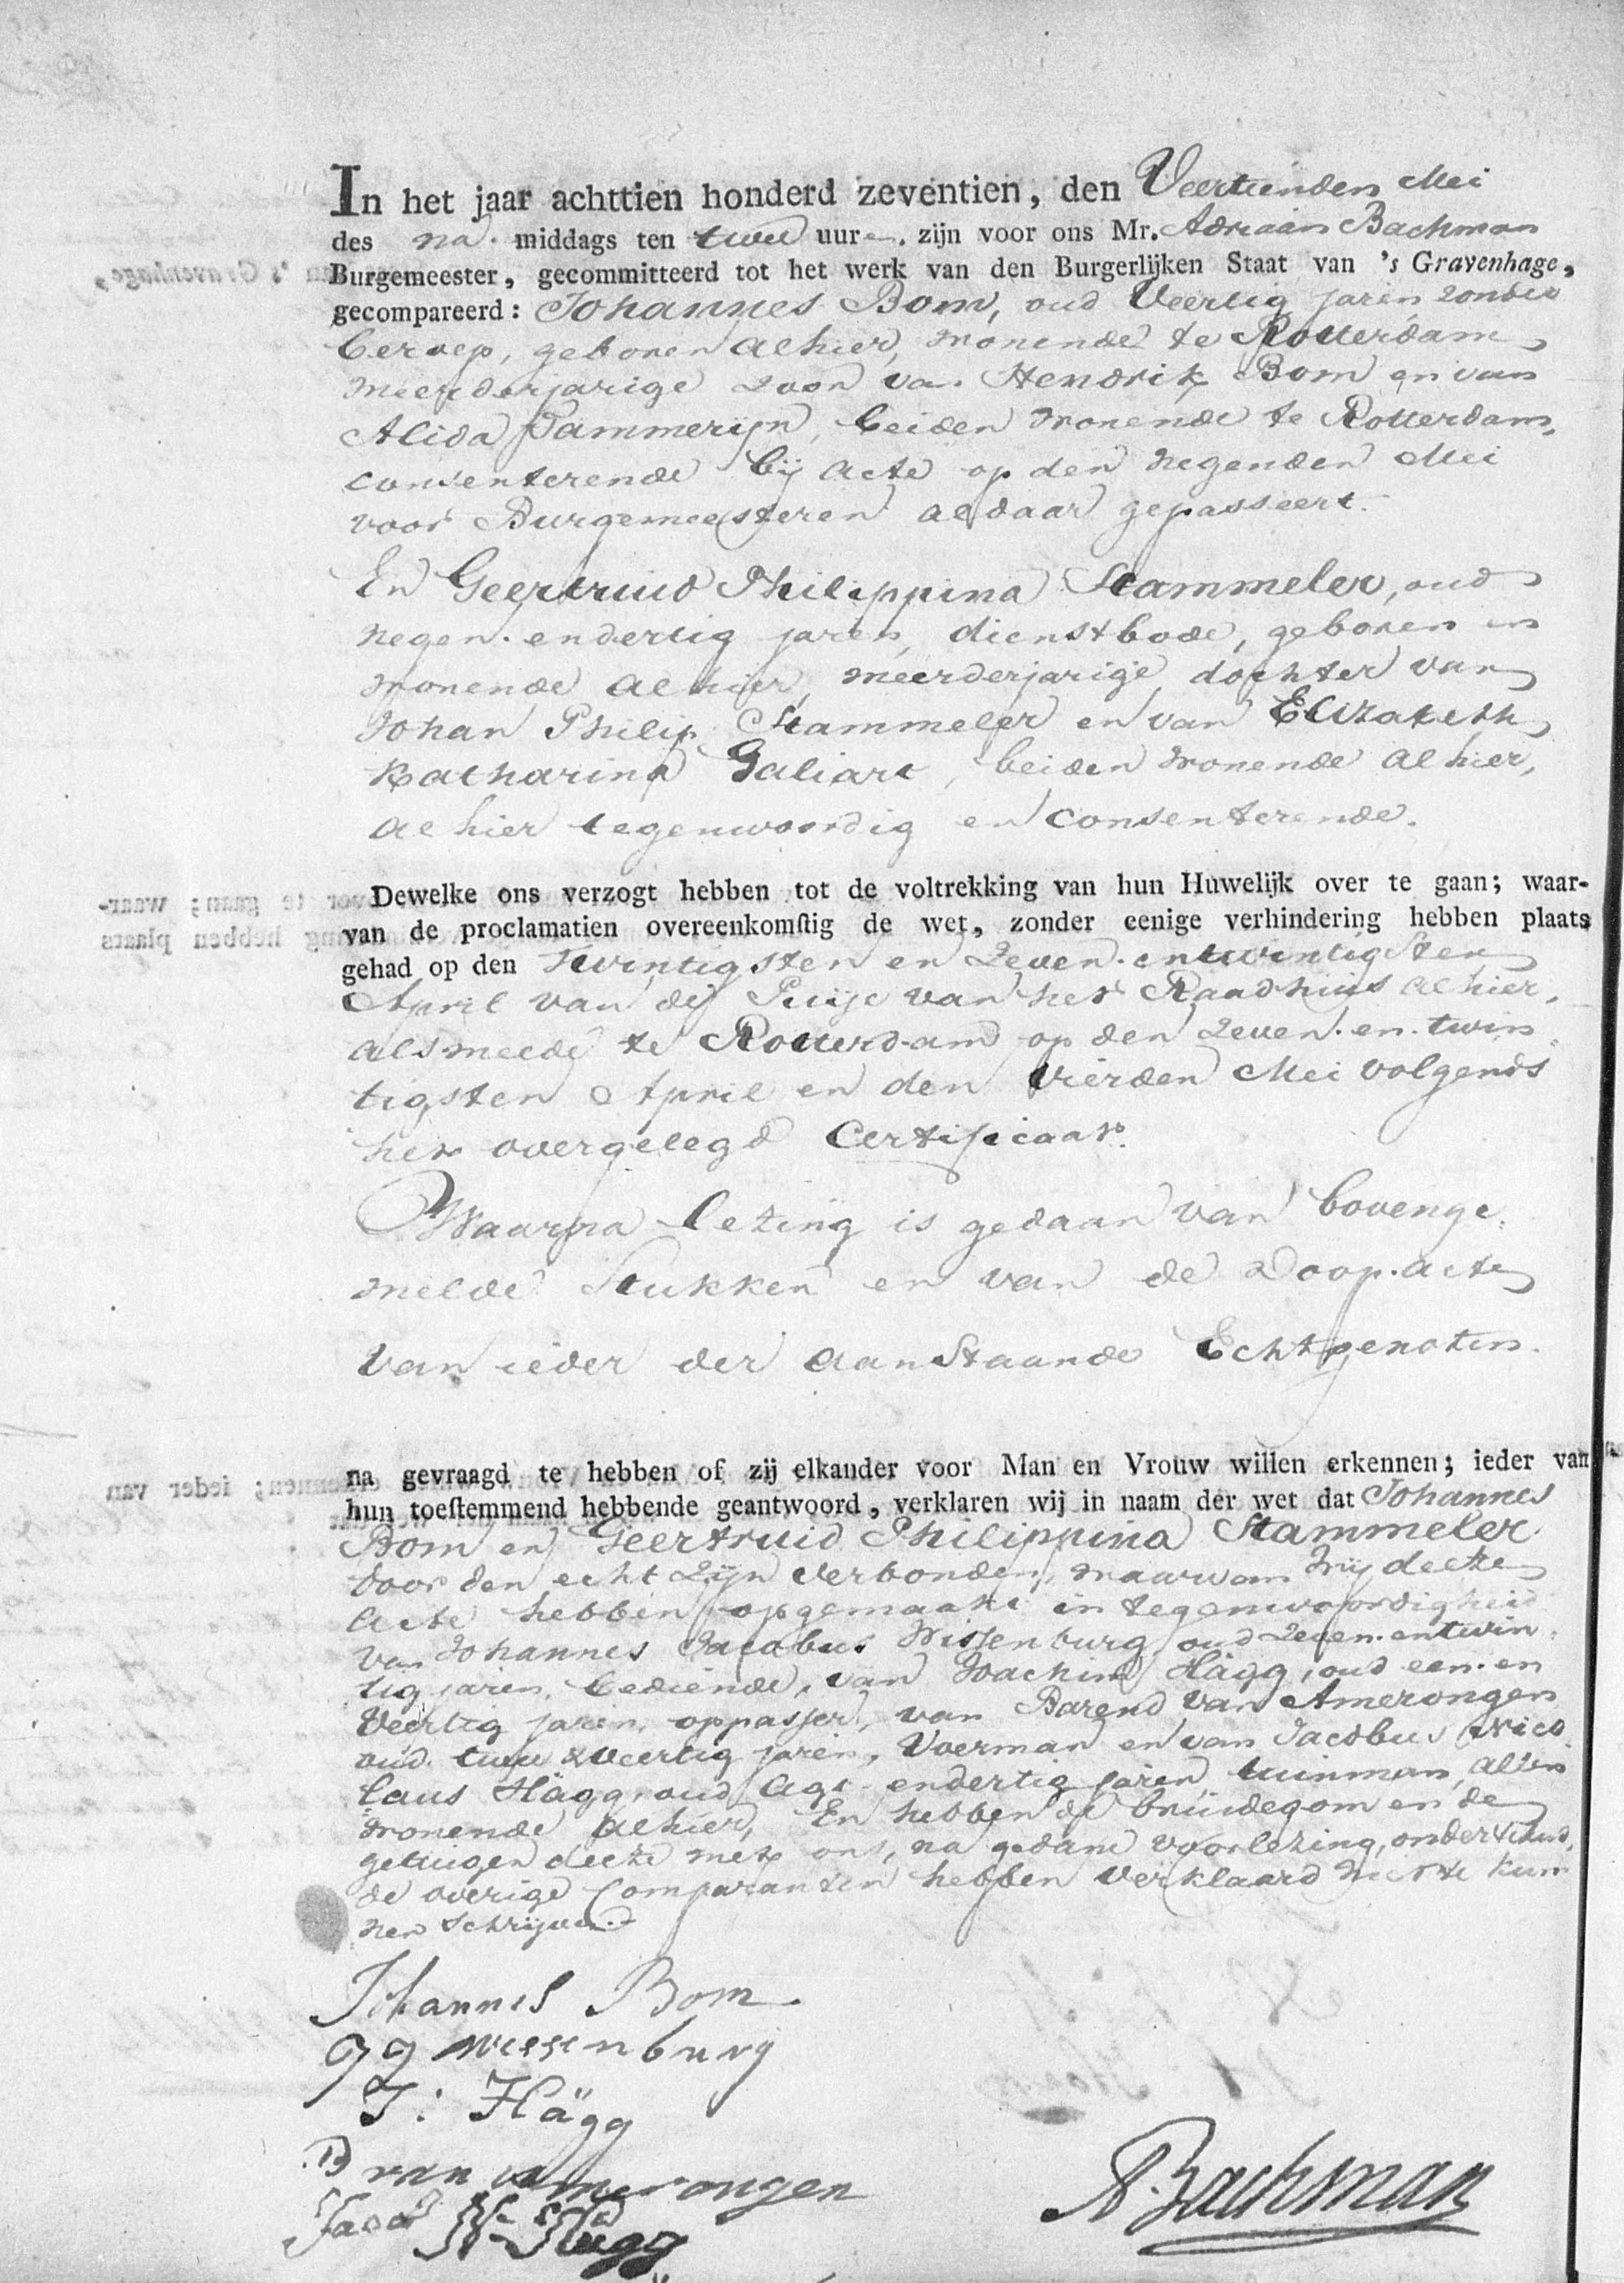 In het jaar achttien honderd zeventien, den Veertienden Mei
des na middags ten twee uuren. zijn voor ons Mr. Adriaan Bachman
Burgemeester, gecommitteerd tot het werk van den Burgerlijken Staat van 's Gravenhage,
gecompareerd: Johannes Bom, oud Veertig jaren, zonder
beroep, geboren alhier, wonende te Rotterdam,
meerderjarige zoon van Hendrik Bom en van
Alida Pammerijn, beiden wonende te Rotterdam,
consenterende bij acte op den negenden Mei
voor Burgemeesteren aldaar gepasseert.
En Geertruid Philippina Stammeler, oud
negen-endertig jaren, dienstbode, geboren en
wonende alhier, meerderjarige dochter van
Johan Philip Stammeler en van Elizabeth
Katharina Galiart, beiden wonende alhier,
alhier tegenwoordig en consenterende.
Dewelke ons verzogt hebben tot de voltrekking van hun Huwelijk over te gaan; waar-
van de proclamatien overeenkomstig de wet, zonder eenige verhindering hebben plaats
gehad op den Twintigsten en Zeven-entwintigsten
April van de Puije van het Raadhuis alhier,
alsmede te Rotterdam op den Zeven-en-twin
tigsten April en den vierden Mei volgends
het overgelegd Certificaat.
Waarna lezing is gedaan van bovenge
melde Stukken en van de Doop-acte
van ieder der aanstaande Echtgenoten.
na gevraagd te hebben of zij elkander voor Man en Vrouw willen erkennen; ieder van
hun toestemmend hebbende geantwoord, verklaren wij in naam der wet dat Johannes
Bom en Geertruid Philippina Stammeler
door den echt Zijn Verbonden, waarvan Wij deeze
Acte hebben opgemaakt in tegenwoordigheid
van Johannes Jacobus Wissenburg oud Zeven-entwin
tig jaren, bediende, van Joachim Hägg, oud een-en
Veertig jaren, oppasser, van Barend van Amerongen
oud twee & veertig jaren, Voerman en van Jacobus Nico
laus Hägg, oud Agt-endertig jaren, tuinman, allen
wonende alhier, En hebben de bruidegom en de
getuigen deeze met ons, na gedane voorlezing, ondertekend,
de overige Comparanten hebben verklaard niet te kun
nen Schrijven.
Johannes Bom
JJ Wissenburg
J: Hägg
B van Amerongen
Jacob N. Hägg
A. Bachman